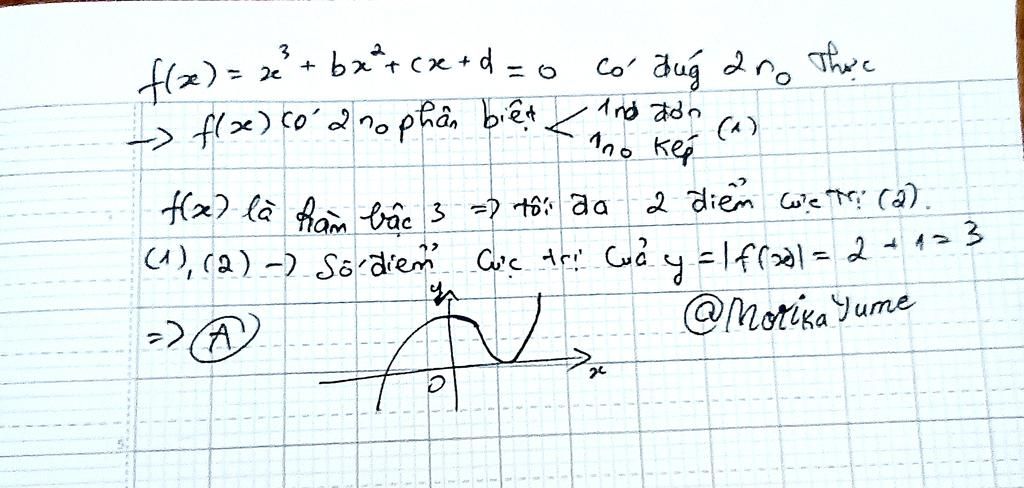 f(x) = x³ + bx² + cx + d = 0 có đúg 2 n₀ thực
→ f(x) có 2 n₀ phân biệt < 1n₀ đơn
1n₀ kép (1)
f(x) là hàm bậc 3 => tối đa 2 điểm cực trị (2).
(1), (2) → Số điểm cực trị của y = |f(x)| = 2 + 1 = 3
=> A
y
O
x
@Morika Yume